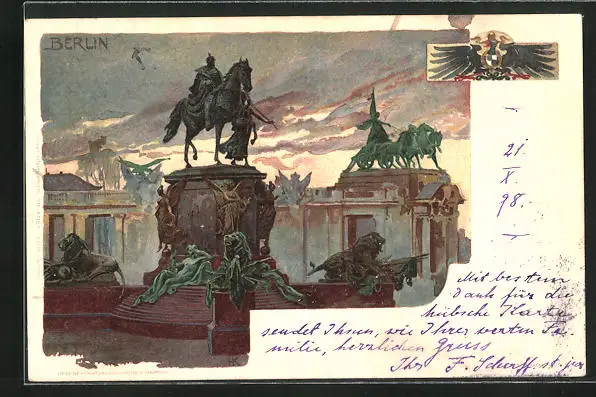 BERLIN
21.
X.
98.
Mit bestem
Dank für die
hübsche Karte
sendet Ihnen, wie Ihrer werten Fa-
milie, herzlichen Gruss
Ihr F. Scherff